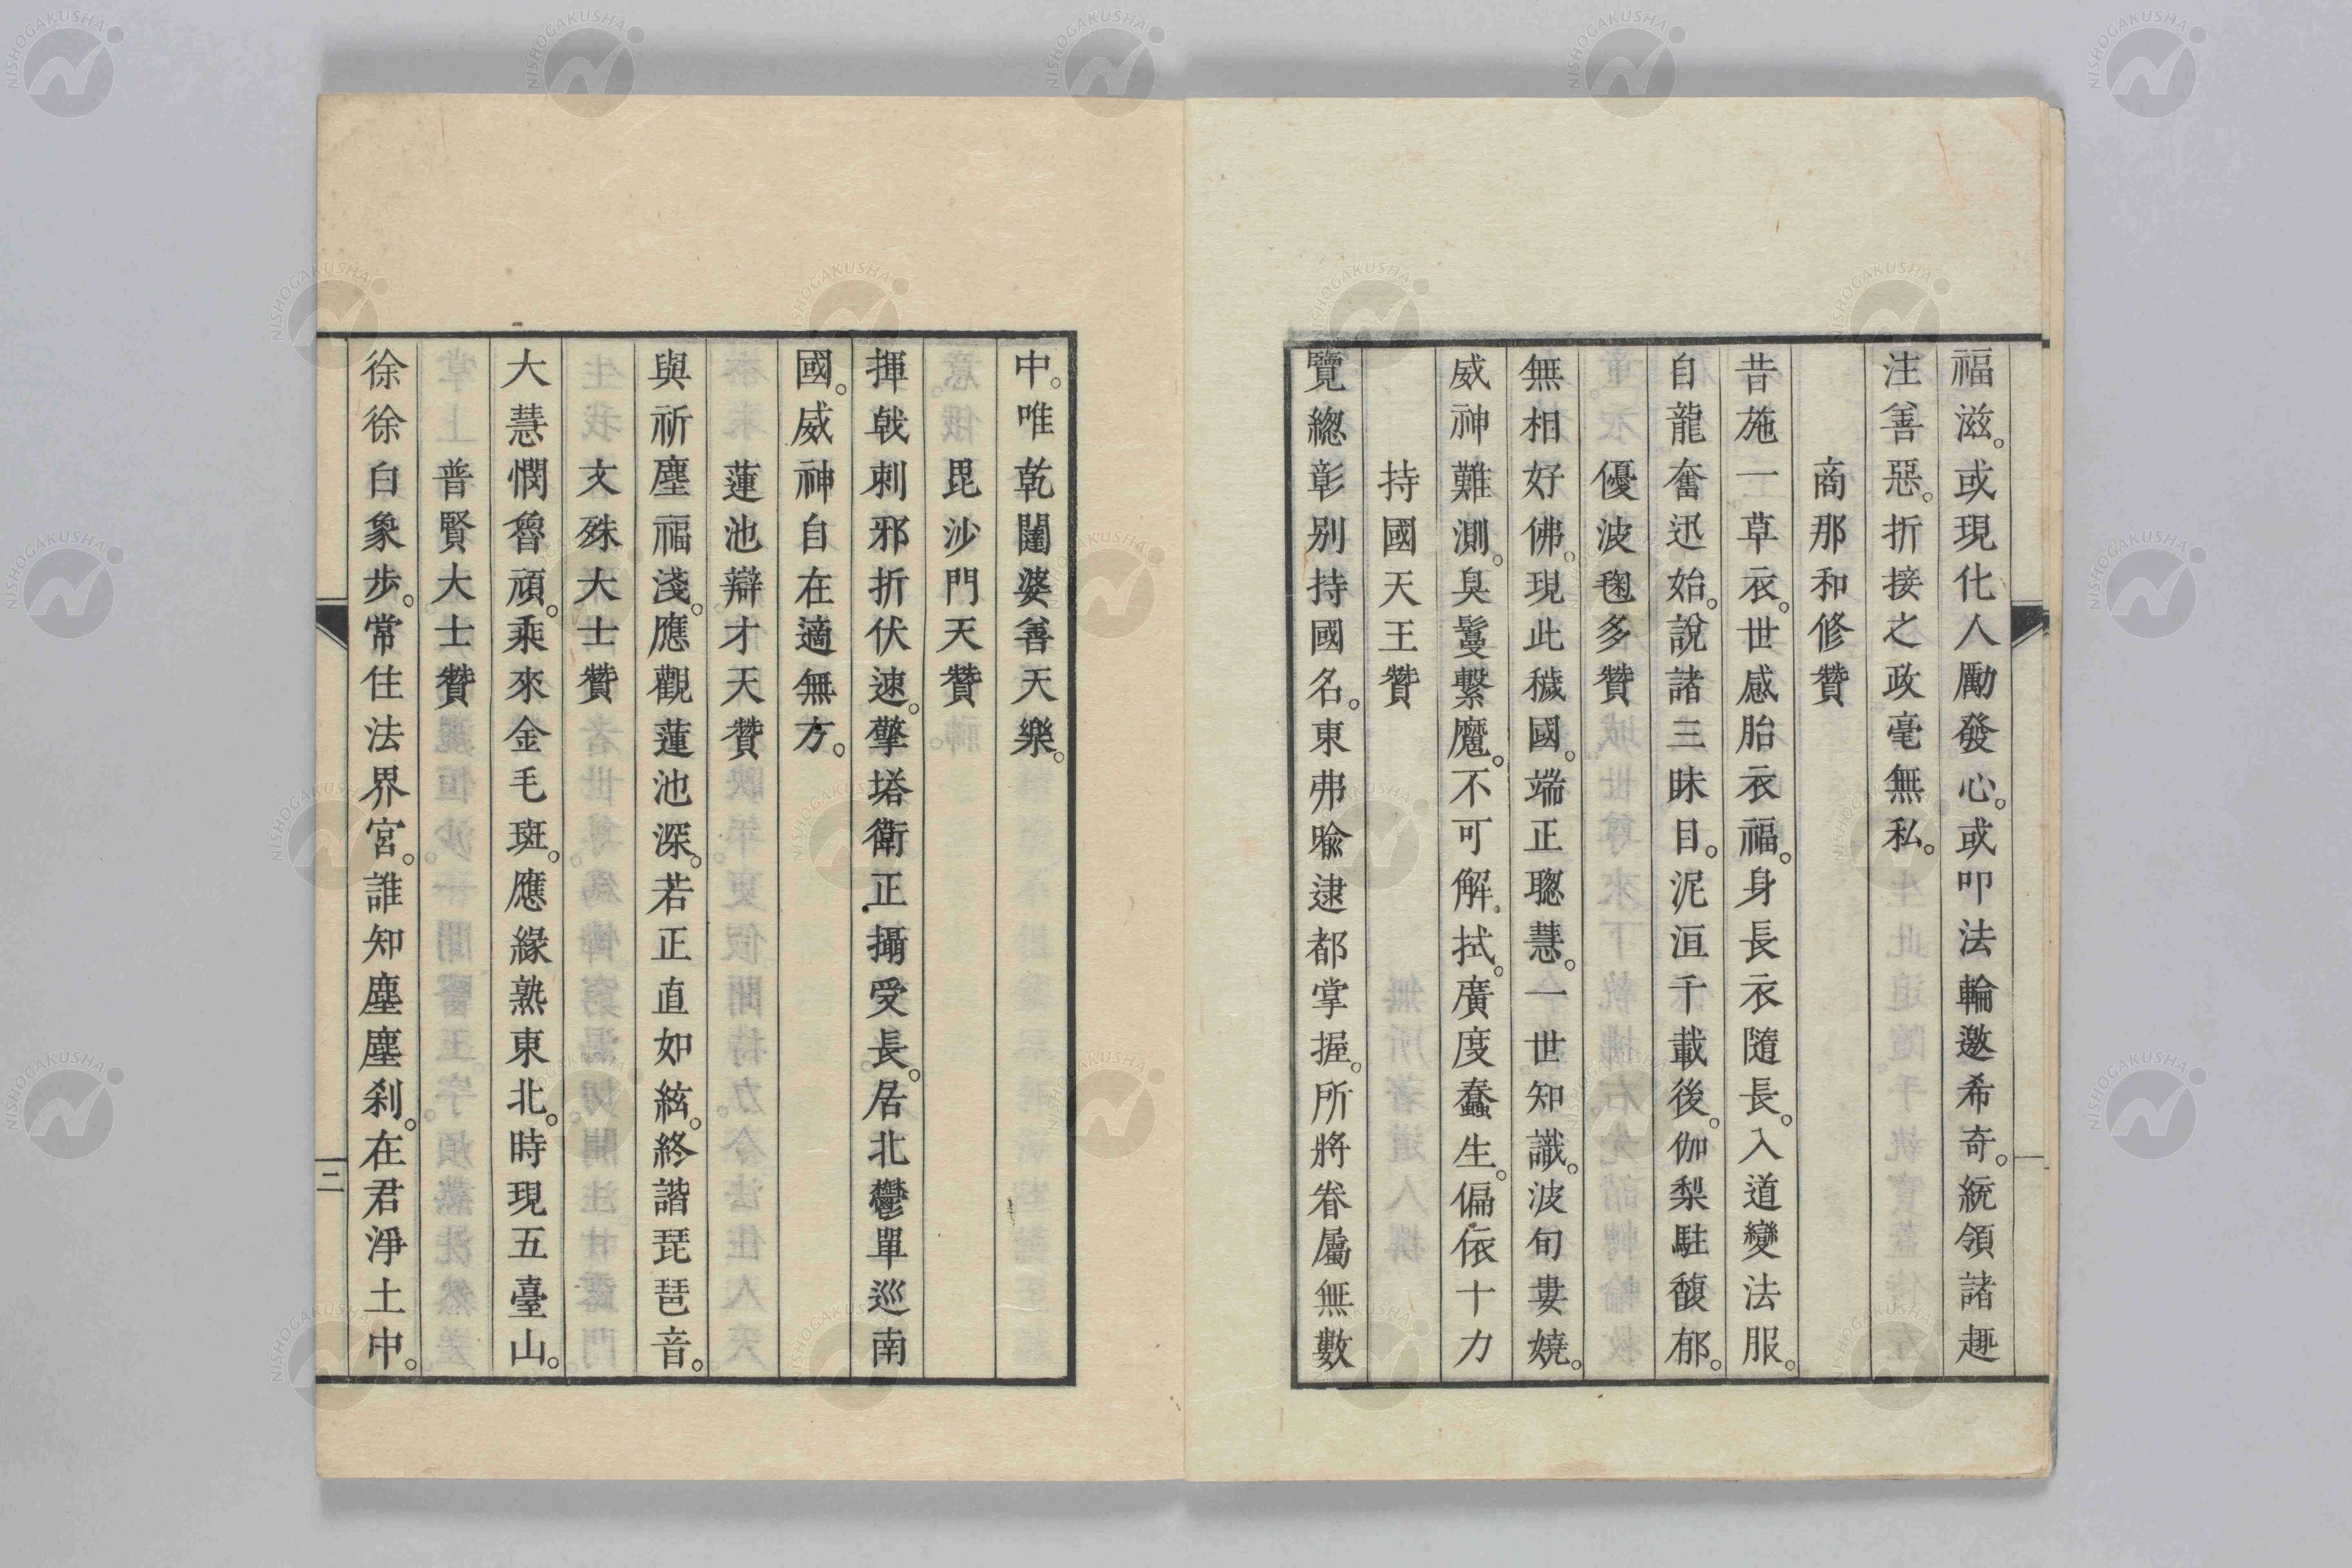 福滋。或現化人勵發心。或叩法輪邀希奇。統領諸趣
注善惡。折接之政毫無私。
商那和修贊
昔施一草衣。世感胎衣福。身長衣隨長。入道變法服。
自龍奮迅始。說諸三昧目。泥洹千載後。伽梨駐馥郁。
優波毱多贊
無相好佛。現此穢國。端正聰慧。一世知識。波旬婁嬈。
威神難測。臭鬘繫魔。不可解拭。廣度蠢生。偏依十力
持國天王贊
覽總彰別持國名。東弗喩逮都掌握。所將眷屬無數
中。唯乾闥婆善天樂。
毘沙門天贊
揮戟刺邪折伏速。擎塔衛正攝受長。居北鬱單巡南
國。威神自在適無方。
蓮池辯才天贊
與祈塵福淺。應觀蓮池深。若正直如絃。終諧琵琶音。
文殊大士贊
大慧憫魯頑。乘來金毛斑。應緣熟東北。時現五臺山。
普賢大士贊
徐徐白象步。常住法界宮。誰知塵塵刹。在君淨土中。
二
NISHOGAKUSHA